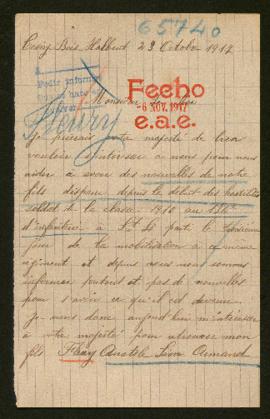 65740
Bois Halbout 23 Octobre 1917
Pedir informe
Fecho
-6 NOV. 1917
e.a.e.
Monsieur
Fleury
Je votre majesté de bien
vouloir à nous pour nous
aider à avoir des nouvelles de notre
fils disparu depuis le début des hostilités
soldat de la classe 1910 au
d'infanterie à St Lô parti le
jour de la mobilisation
régiment et depuis nous nous sommes
informer partout et pas de nouvelles
pour savoir ce qu'il est devenu
je viens donc aujourd'hui m'adresser
à votre majesté pour retrouver mon
fils Fleury Anatole Léon Armand